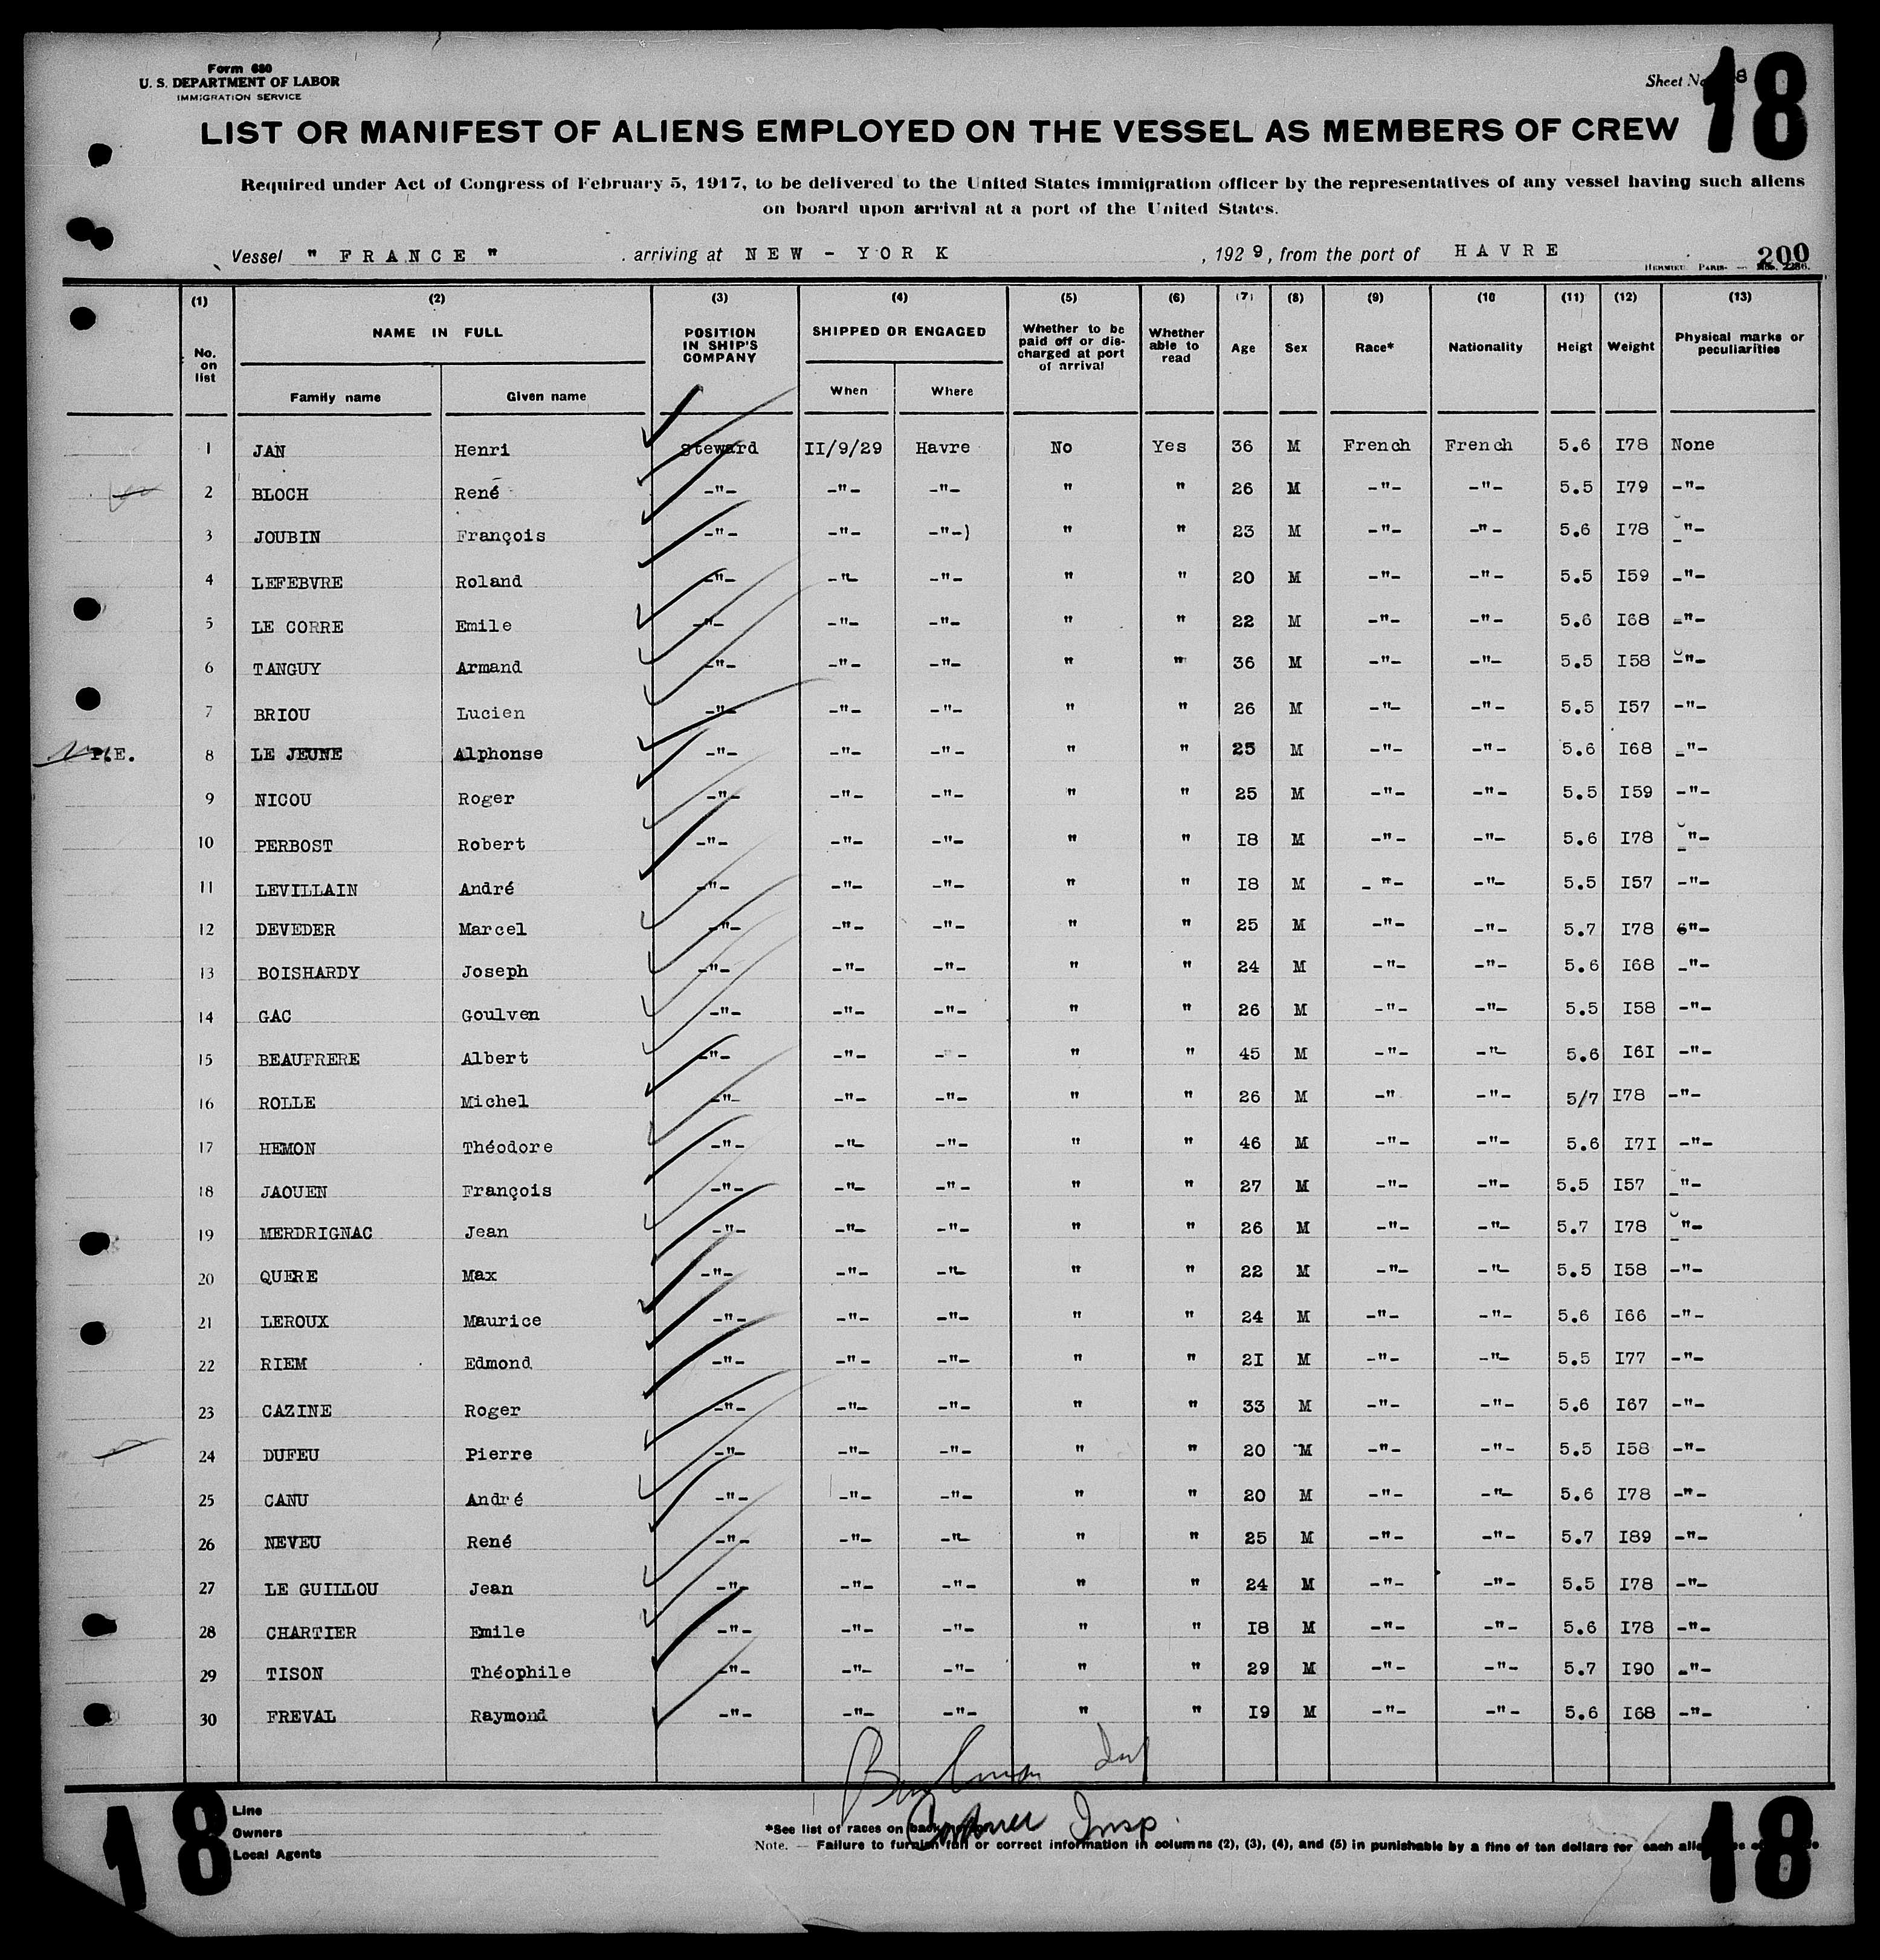 Form 680
U. S. DEPARTMENT OF LABOR
IMMIGRATION SERVICE
Sheet No. 18
18
LIST OR MANIFEST OF ALIENS EMPLOYED ON THE VESSEL AS MEMBERS OF CREW
Required under Act of Congress of February 5, 1917, to be delivered to the United States immigration officer by the representatives of any vessel having such aliens
on board upon arrival at a port of the United States.
Vessel " FRANCE " arriving at NEW - YORK , 1929, from the port of HAVRE
200
HERMIEU. PARIS. —
(1) (2) (3) (4) (5) (6) (7) (8) (9) (10 (11) (12) (13)
No. on list NAME IN FULL Family name Given name POSITION IN SHIP'S COMPANY SHIPPED OR ENGAGED When Where Whether to be paid off or discharged at port of arrival Whether able to read Age Sex Race* Nationality Heigt Weight Physical marks or peculiarities
1 JAN Henri Steward II/9/29 Havre No Yes 36 M French French 5.6 I78 None
2 BLOCH René -"- -"- -"- " " 26 M -"- -"- 5.5 I79 -"-
3 JOUBIN François -"- -"- -"-) " " 23 M -"- -"- 5.6 I78 -"-
4 LEFEBVRE Roland -"- -"- -"- " " 20 M -"- -"- 5.5 I59 -"-
5 LE CORRE Emile -"- -"- -"- " " 22 M -"- -"- 5.6 I68 -"-
6 TANGUY Armand -"- -"- -"- " " 36 M -"- -"- 5.5 I58 -"-
7 BRIOU Lucien -"- -"- -"- " " 26 M -"- -"- 5.5 I57 -"-
P.E. 8 LE JEUNE Alphonse -"- -"- -"- " " 25 M -"- -"- 5.6 I68 -"-
9 NICOU Roger -"- -"- -"- " " 25 M -"- -"- 5.5 I59 -"-
10 PERBOST Robert -"- -"- -"- " " I8 M -"- -"- 5.6 I78 -"-
11 LEVILLAIN André -"- -"- -"- " " I8 M -"- -"- 5.5 I57 -"-
12 DEVEDER Marcel -"- -"- -"- " " 25 M -"- -"- 5.7 I78 6"-
13 BOISHARDY Joseph -"- -"- -"- " " 24 M -"- -"- 5.6 I68 -"-
14 GAC Goulven -"- -"- -"- " " 26 M -"- -"- 5.5 I58 -"-
15 BEAUFRERE Albert -"- -"- - - " " 45 M -"- -"- 5.6 I6I -"-
16 ROLLE Michel -"- -"- -"- " " 26 M -" -"- 5/7 I78 -"-
17 HEMON Théodore -"- -"- -"- " " 46 M -"- -"- 5.6 I7I -"-
18 JAOUEN François -"- -"- -"- " " 27 M -"- -"- 5.5 I57 -"-
19 MERDRIGNAC Jean -"- -"- -"- " " 26 M -"- -"- 5.7 I78 -"-
20 QUERE Max -"- -"- -"- " " 22 M -"- -"- 5.5 I58 -"-
21 LEROUX Maurice -"- -"- -"- " " 24 M -"- -"- 5.6 I66 -"-
22 RIEM Edmond -"- -"- -"- " " 2I M -"- -"- 5.5 I77 -"-
23 CAZINE Roger -"- -"- -"- " " 33 M -"- -"- 5.6 I67 -"-
24 DUFEU Pierre -"- -"- -"- " " 20 M -"- -"- 5.5 I58 -"-
25 CANU André -"- -"- -"- " " 20 M -"- -"- 5.6 I78 -"-
26 NEVEU René -"- -"- -"- " " 25 M -"- -"- 5.7 I89 -"-
27 LE GUILLOU Jean -"- -"- -"- " " 24 M -"- -"- 5.5 I78 -"-
28 CHARTIER Emile -"- -"- -"- " " I8 M -"- -"- 5.6 I78 -"-
29 TISON Théophile -"- -"- -"- " " 29 M -"- -"- 5.7 I90 -"-
30 FREVAL Raymond -"- -"- -"- " " I9 M -"- -"- 5.6 I68 -"-
Insp.
18
Line
Owners
Local Agents
*See list of races on back
Note. — Failure to furnish full or correct information in columns (2), (3), (4), and (5) in punishable by a fine of ten dollars for each
18